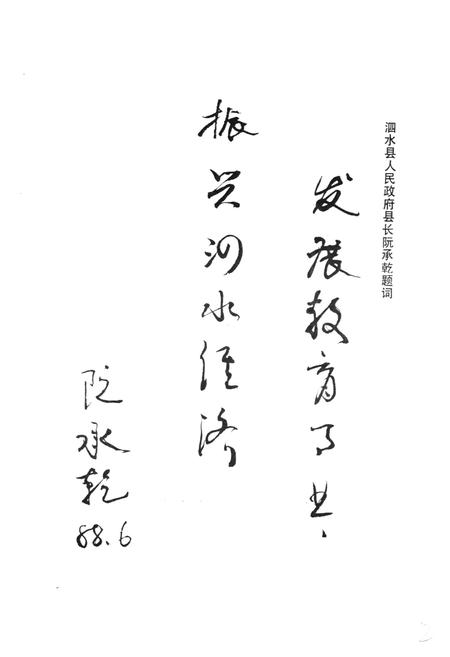 泗水县人民政府县长阮承乾题词
发展教育事业、
振兴泗水经济
阮承乾
88.6